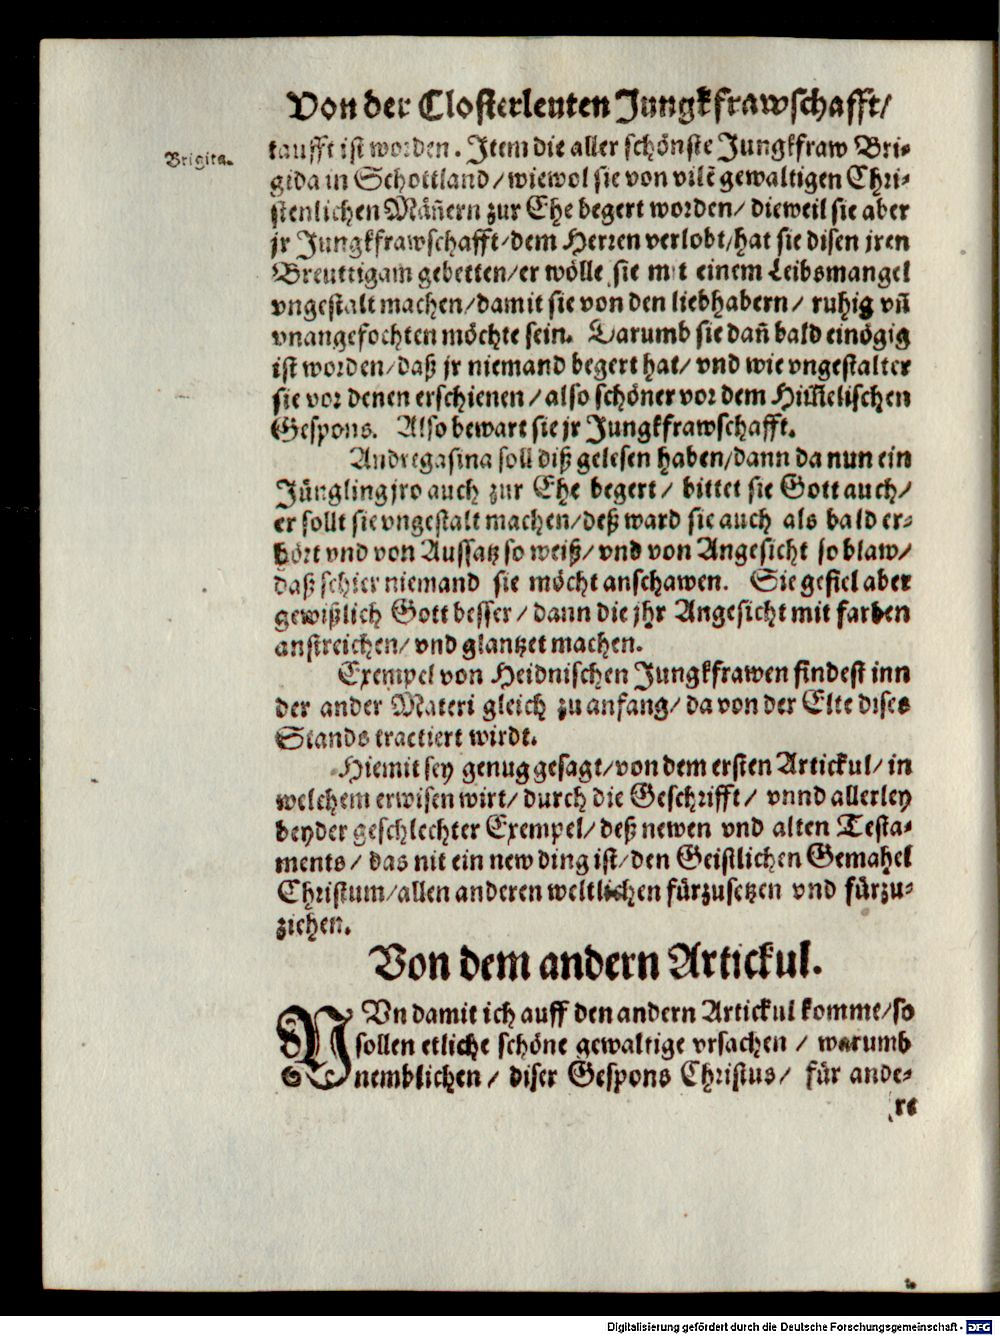 Von der Closterleuten Jungkfrawschafft/
Brigita.
taufft ist worden. Item die aller schönste Jungkfraw Bri-
gida in Schottland/wiewol sie von vilẽ gewaltigen Chri-
stenlichen Mañern zur Ehe begert worden/ dieweil sie aber
jr Jungkfrawschafft/dem Herren verlobt/hat sie disen jren
Breuttigam gebetten/er wölle sie mit einem Leibsmangel
vngestalt machen/damit sie von den liebhabern/ ruhig vñ
vnangefochten möchte sein. Darumb sie dañ bald einögig
ist worden/daß jr niemand begert hat/ vnd wie vngestalter
sie vor denen erschienen/also schöner vor dem Him̃elischen
Gespons. Also bewart sie jr Jungkfrawschafft.
Andregasina soll diß gelesen haben/dann da nun ein
Jüngling jro auch zur Ehe begert/ bittet sie Gott auch/
er sollt sie vngestalt machen/deß ward sie auch als bald er-
hört vnd von Aussatz so weiß/ vnd von Angesicht so blaw/
daß schier niemand sie möcht anschawen. Sie gefiel aber
gewißlich Gott besser/ dann die jhr Angesicht mit farben
anstreichen/ vnd glantzet machen.
Exempel von Heidnischen Jungkfrawen findest inn
der ander Materi gleich zu anfang/ da von der Elte dises
Stands tractiert wirdt.
Hiemit sey genug gesagt/von dem ersten Artickul/ in
welchem erwisen wirt/ durch die Geschrifft/ vnnd allerley
beyder geschlechter Exempel/ deß newen vnd alten Testa-
ments/ das nit ein new ding ist/den Geistlichen Gemahel
Christum/allen anderen weltlichen fürzusetzen vnd fürzu-
ziehen.
Von dem andern Artickul.
NVn damit ich auff den andern Artickul komme/so
sollen etliche schöne gewaltige vrsachen/ warumb
nemblichen/ diser Gespons Christus/ für ande-
re
Digitalisierung gefördert durch die Deutsche Forschungsgemeinschaft - DFG